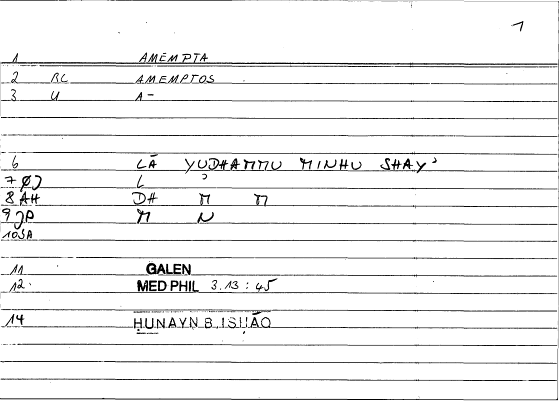 1
1 AMEMPTA
2 BC AMEMPTOS
3 U A-
6 LĀ YUDHAMMU MINHU SHAYʾ
7 ØJ L ʾ
8 AH DH M M
9 JP M N
10 SA
11 GALEN
12. MED PHIL 3.13 : 45
14 HUNAYN B. ISḤĀQ